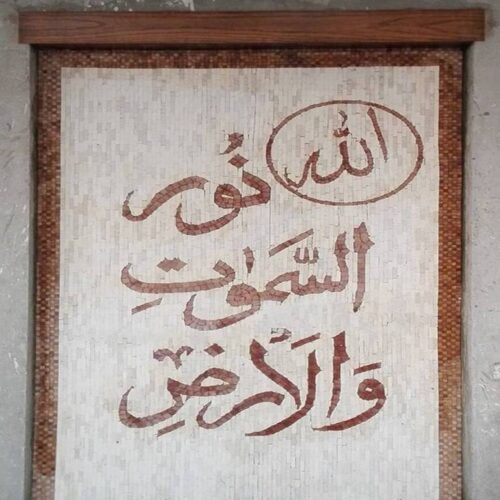 الله نُور
السَّمَٰوَٰتِ
وَالْأَرْضِ